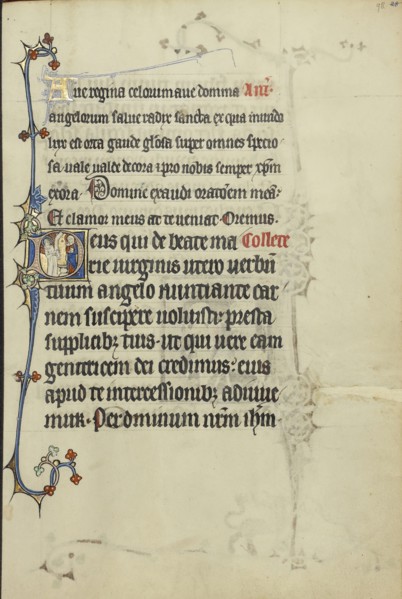 Aue regina celorum aue domina Ant̄.
angelorum salue radix sancta ex qua mundo
lux est orta gaude gl̄osa super omnes specio
sa uale ualde decora ⁊ pro nobis semper xp̄m
exora. Domine exaudi orat̄oem meā:
Et clamor meus ad te ueniat. Oremus.
Deus qui de beate ma Collecte
rie uirginis utero uerbū
tuum angelo nuntiante car
nem suscipere uoluisti: presta
supplicibꝫ tuis. ut qui uere eam
genitricem dei credimus: eius
apud te intercessionibꝫ adiuue
mur. Per dominum nr̄m ih̄m.